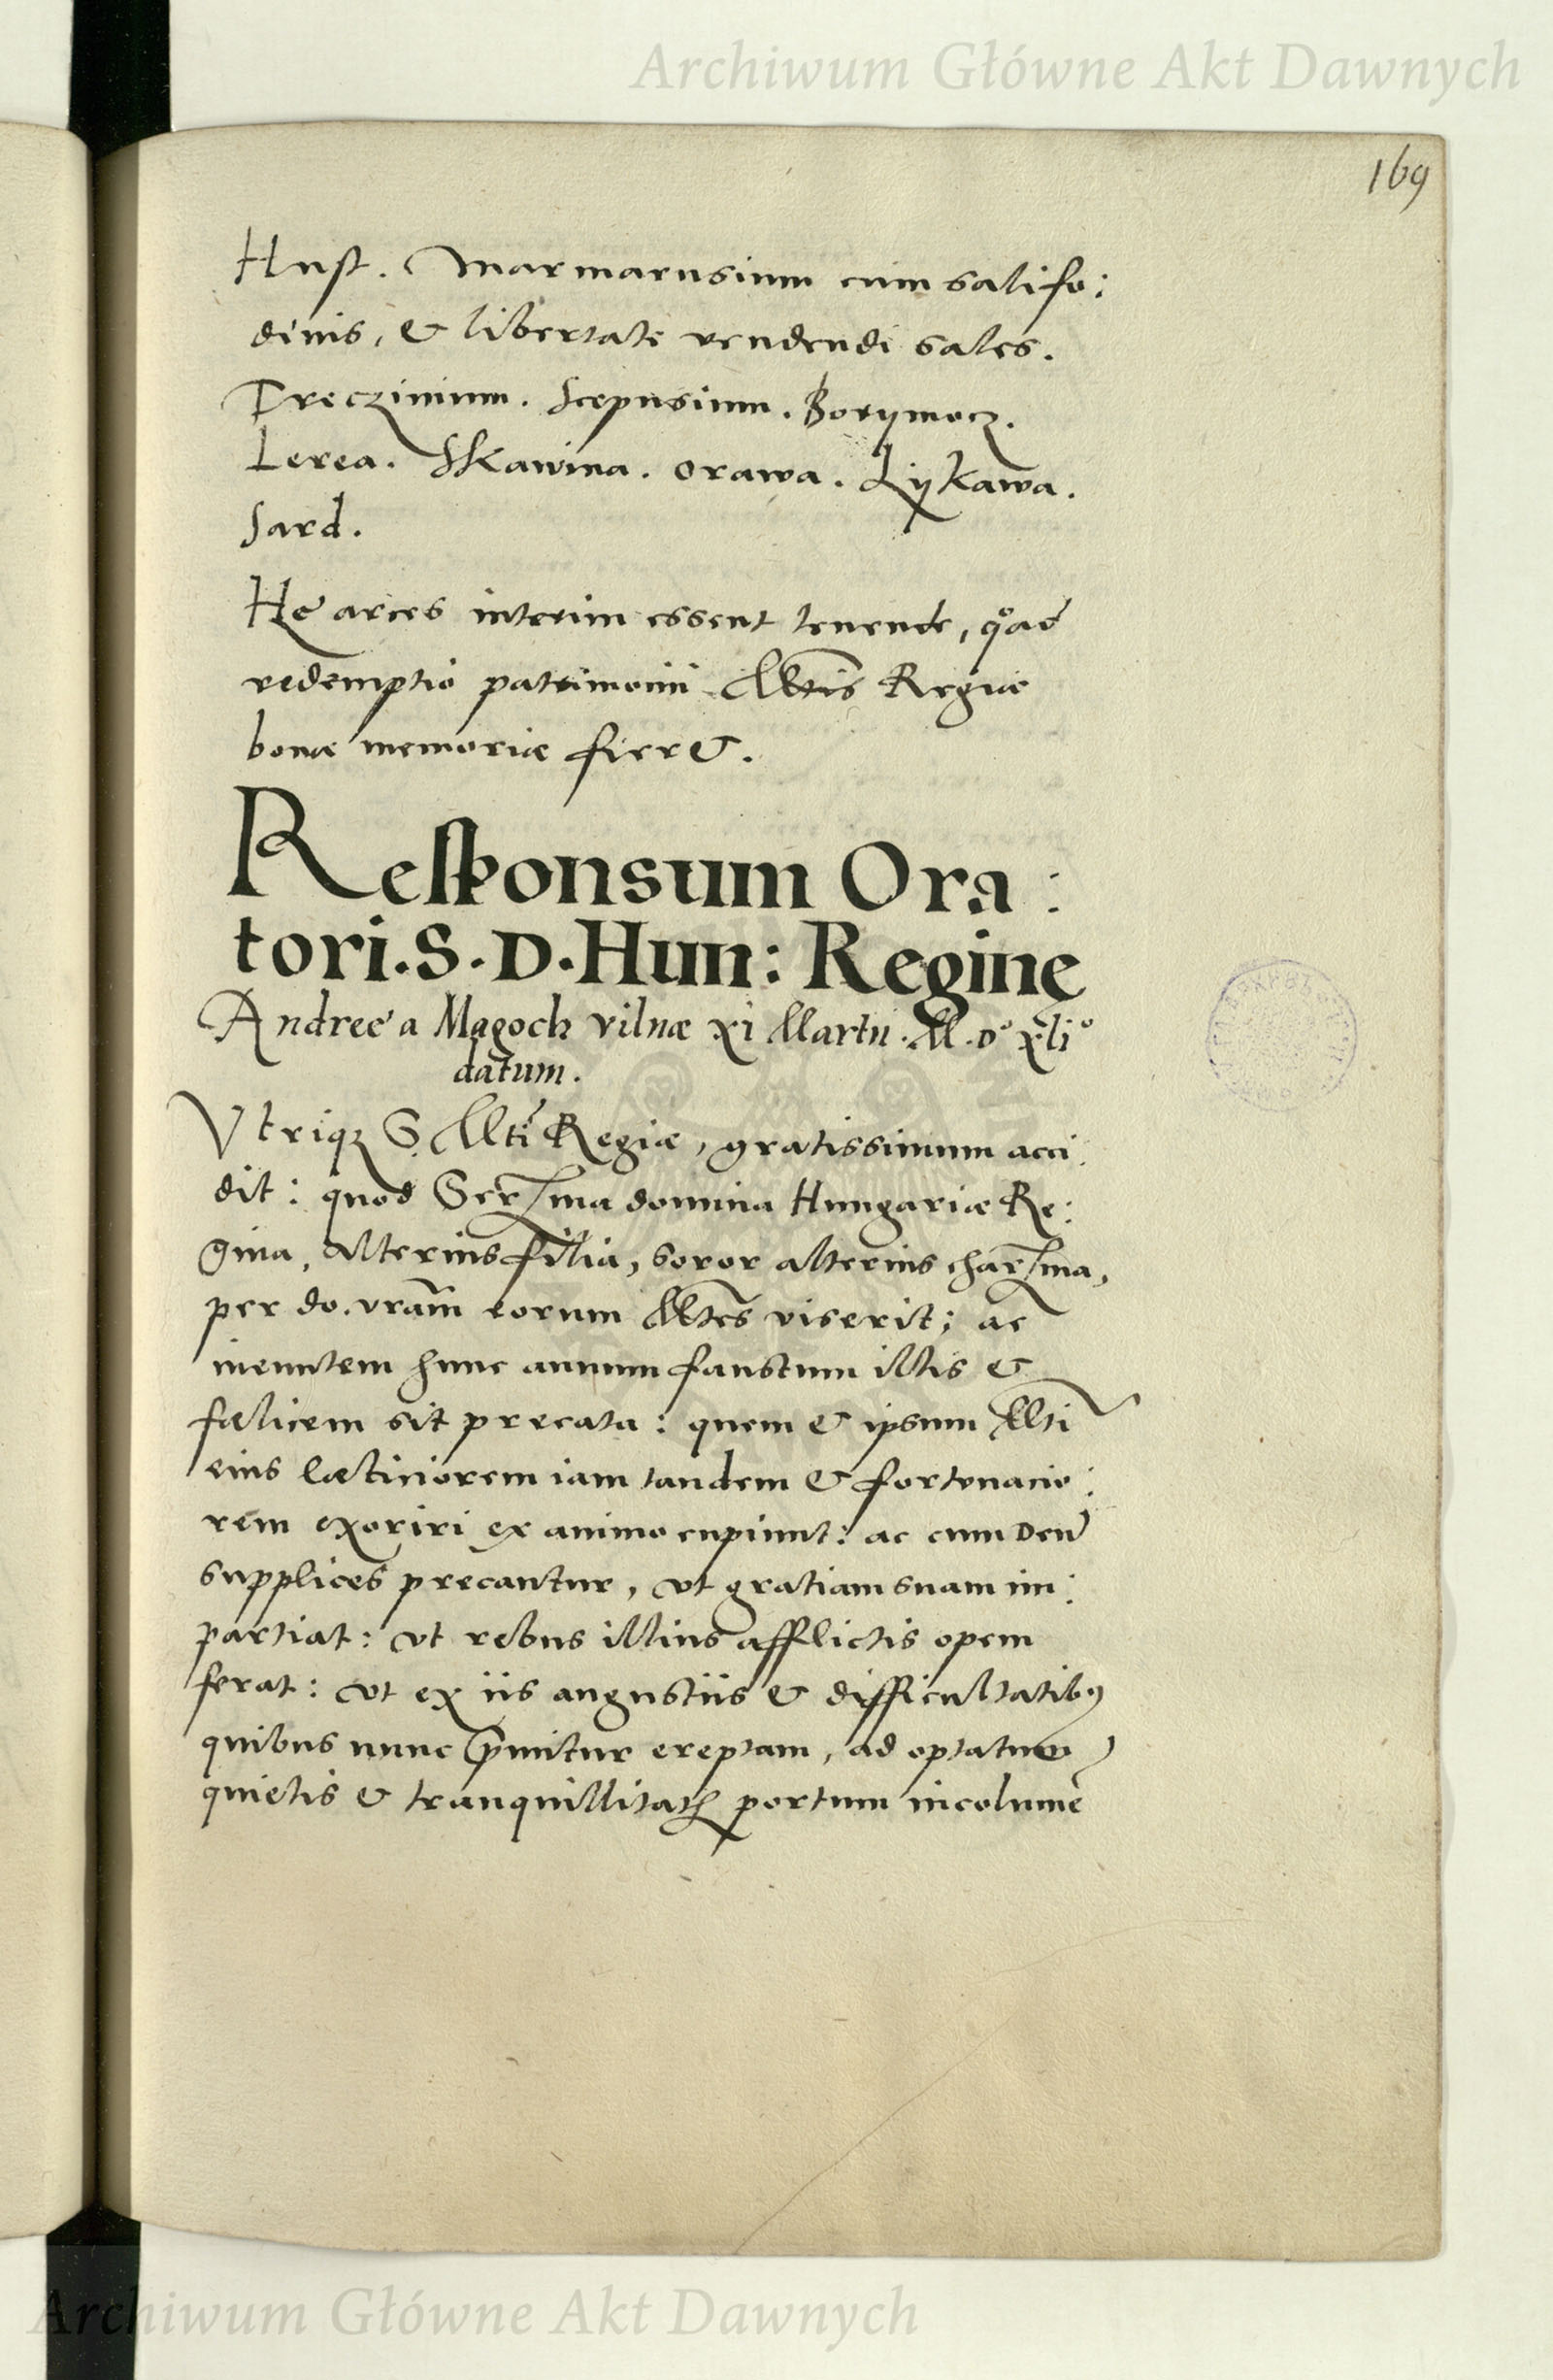 Archiwum Główne Akt Dawnych
169
Hust. Marmarusium cum salifo:
dinis, & libertate vendendi sales.
Treczinium. Scepusium. Borymocz.
Lerea. Skawina. Orawa. Lykawa.
Sard.
He arces interim essent tenende, qoad
redemptio patrimonii Mtis Regiæ
bonæ memoriæ fieret.
Responsum Ora:
tori. S. D. Hun: Regine
Andreę a Magoch vilnæ xi Martii. M. Do xli°
datum.
Vtriq; S. Mti Regiæ, gratissimum acci:
dit: quod Serma domina Hungariæ Re:
gina, alterius filia, soror alterius charma,
per do. vram eorum Mtes viserit; ac
ineuntem hunc annum faustum illis &
fælicem sit precata: quem & ipsum Mti
eius læticiorem iam tandem & fortunacio:
rem exoriri ex animo cupiunt: ac cum Deu
supplices precantur, vt gratiam suam im:
partiat: vt rebus illius afflictis opem
ferat: vt ex iis angustiis & difficultatibq
quibus nunc pmitur ereptam, ad optatum
quietis & tranquillitatis portum incolume
Archiwum Główne Akt Dawnych